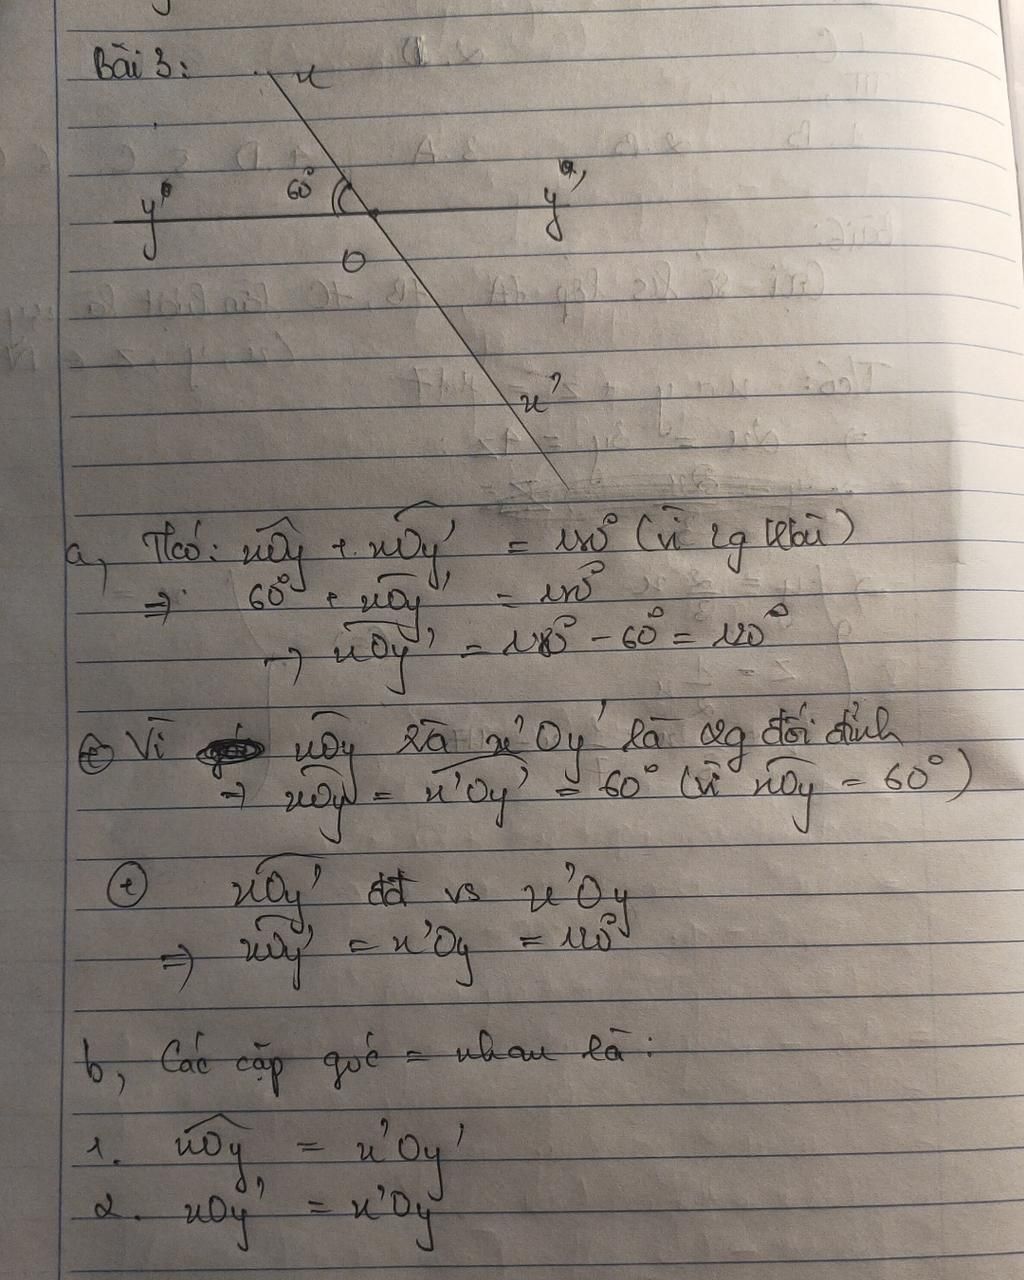 Bài 3:
x
60°
y
y'
O
x'
a, Tcó: xOy + xOy' = 180° (vì 2g kbù)
⇒ 60° + xOy' = 180°
→ xOy' = 180° - 60° = 120°
+ Vì xOy và x'Oy' là 2g đối đỉnh
⇒ xOy = x'Oy' = 60° (vì xOy = 60°)
+ xOy' đđ vs x'Oy
⇒ xOy' = x'Oy = 120°
b, Các cặp góc = nhau là:
1. xOy = x'Oy'
2. xOy' = x'Oy